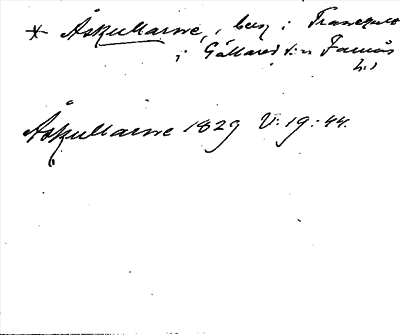 * Åskullarne, , bey i Tranekulla
i Gällared s:n Faurås
hd
Åskullarne 1829 V: 19: 44.